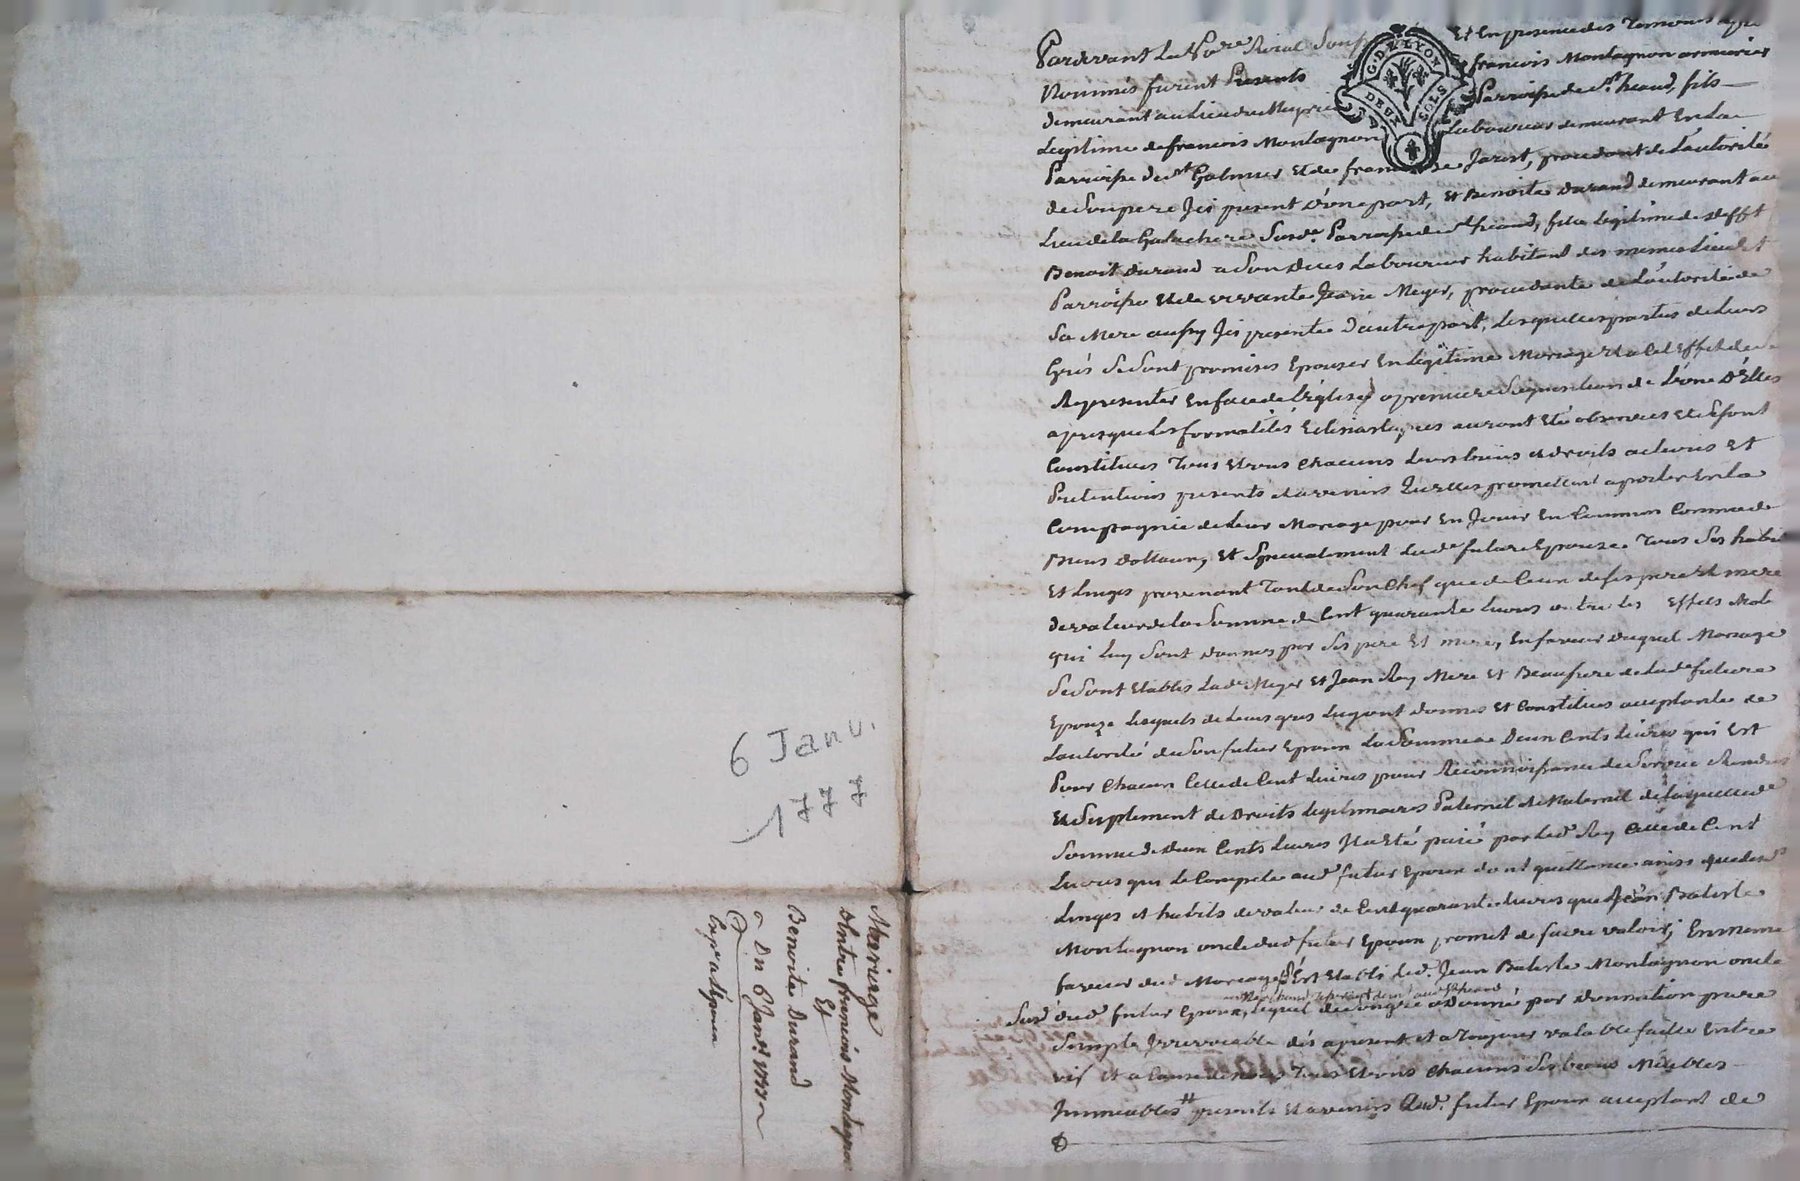 6 Janv.
1777
Mariage
d'Entre françois Montagnon
Et
Benoite Durand
Du 6 Janv. 1777
Expédiée
G. DE LYON
DEUX SOLS
Pardevant Le No.re Roial Sous Et En presence des Temoins apres
Nommés furent Presents françois Montagnon armurier
demeurant au Lieu du Parroisse de St. heand, fils
Legitime de francois Montagnon Laboureur demeurant En La
Parroisse de St Galmier Et de Jarest, procedant de L'autorité
de Son pere Jci present d'Une part, Et Benoite Durand demeurant au
Lieu de la Susd.e Parroisse de St heand, fille Legitime de defft
Benoit Durand a Son Deces Laboureur habitant des mesme Lieu Et
Parroisse Et de vivante Jeane Meyer, procedante de L'autorité de
Sa Mere aussy Jci presente D'autre part, Lesquelles parties de Leurs
Grés Se Sont promises Epouser En Legitime Mariage Et a Cet Effet de
Representer En face de l'église a premiere Requisition de L'une D'Elles
apres que Les formalités Eclesiastiques auront Eté observées Et Se font
Constitues Tous Et uns Chacuns Leurs biens Et droits actions Et
Pretentions presents Et avenirs Qu'Elles promettent aporter En La
Compagnie de Leur Mariage pour En Jouir En Commun Comme de
Biens dottaux, Et Specialement Lad.e future Epouze Tous Ses habits
Et Linges provenant Tant de Son Chef que de Ceux de ses pere Et mere
de valeur de la Somme de Cent quarante Livres outre les Effets
qui Luy Sont donnés par Ses pere Et mere, En faveur duquel Mariage
Se Sont Etablis Lad.e Meyer Et Jean Rey Mere Et Beaufrere de Lad.e future
Epouze Lequels de Leurs gres Luy ont donnés Et Constitues acceptante de
L'autorité de Son futur Epoux La Somme de Deux Cents Livres qui Est
Pour Chacun Celle de Cent Livres pour Reconnoissance de Service Rendus
Et Suplement de Droits Legitimaires Paternel Et Maternel de laquelle de
Somme de Deux Cents Livres Jl a Eté paié par Led. Rey Celle de Cent
Livres qui Le Compete aud. futur Epoux dont quittance ainsi que desd.
Linges Et habits de valeur de Cent quarante Livres que Jean Batiste
Montagnon oncle dud. futur Epoux promet de faire valoir, En meme
faveur dud. Mariage S'Est Etabli Led. Jean Batiste Montagnon oncle
Susd. dud. futur Epoux, Lequel de Son gré a Donné par Donnation pure
Simple Jrrevocable dés apresent Et a Toujours valable faite Entre
vif Et a Cause de Tous Et uns Chacuns Ses biens Meubles
Jmmeubles presents Et avenirs Aud. futur Epoux acceptant de